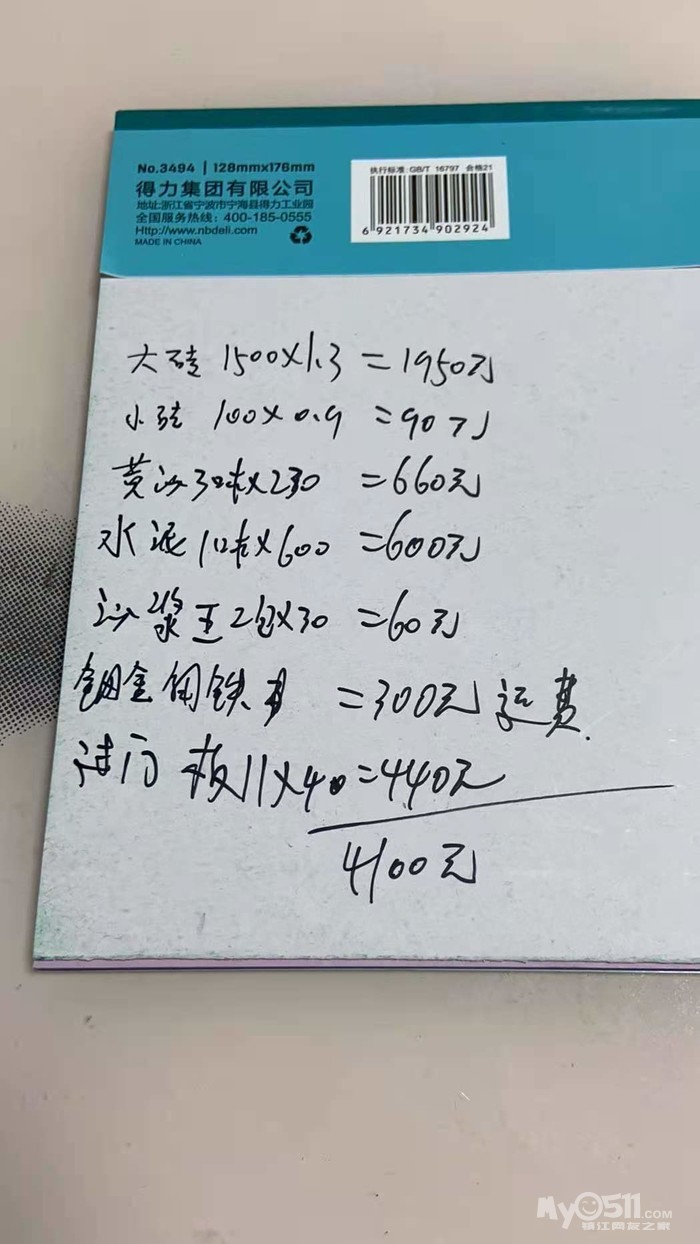 No.3494 | 128mmx176mm
得力集团有限公司
地址:浙江省宁波市宁海县得力工业园
全国服务热线: 400-185-0555
Http://www.nbdeli.com
MADE IN CHINA
执行标准: GB/T 16797 合格21
6 921734 902924
大砖 1500×1.3 =1950元
小砖 100×0.9 =90元
黄沙 30 ×230 =660元
水泥 1 ×600 =600元
沙浆王2包×30 =60元
=300元 运费
过门板11×40=440元
4100元
My0511.COM
镇江网友之家